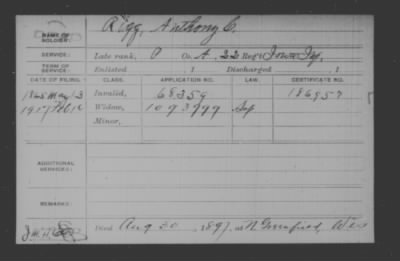 NAME OF SOLDIER: Rigg, Anthony C.
SERVICE: Late rank, P Co. A, 22 Reg't Iowa Inf.
TERM OF SERVICE: Enlisted , 1 Discharged , 1
DATE OF FILING. CLASS. APPLICATION NO. LAW. CERTIFICATE NO.
1865 May 13 Invalid, 68359 186957
Widow, 1093799
Minor,
ADDITIONAL SERVICES:
REMARKS:
Died Aug 30, 1897, at N. Greenfield, Wis